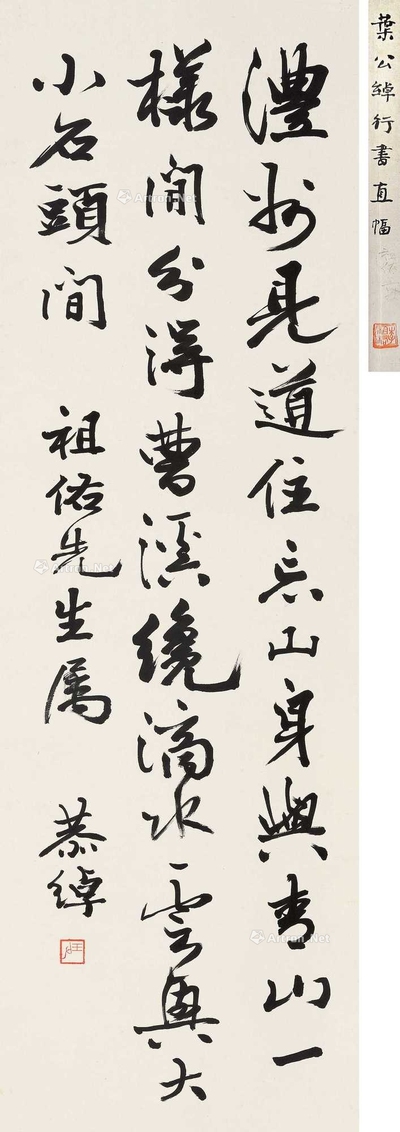 澧州見道住忘山身與青山一
樣閒分得曹溪纔滴水雲興大
小石頭間
祖佑先生属
恭綽
葉公綽行書直幅
Artron.Net